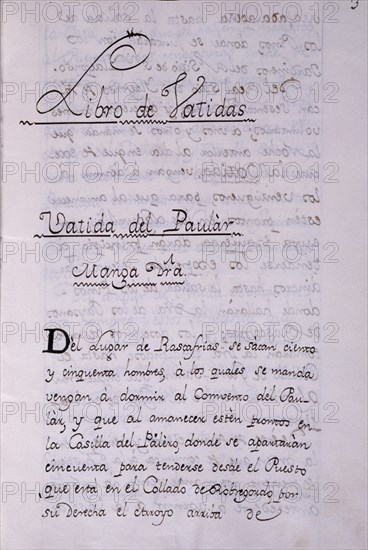 Libro de Vatidas
Vatida del Paulàr
Manga Drâ.
Del Lugar de Rascafrias se sacan ciento
y cinquenta hombres, à los quales se manda
vengan à dormir al Comvento del Pau-
làr, y que al amanecer estèn promtos en
la Casilla del Palèro, donde se apartaràn
cincuenta para tenderse desde el Puesto
que està en el Collado de Robregordo, por
su derecha el Arroyo arriba de